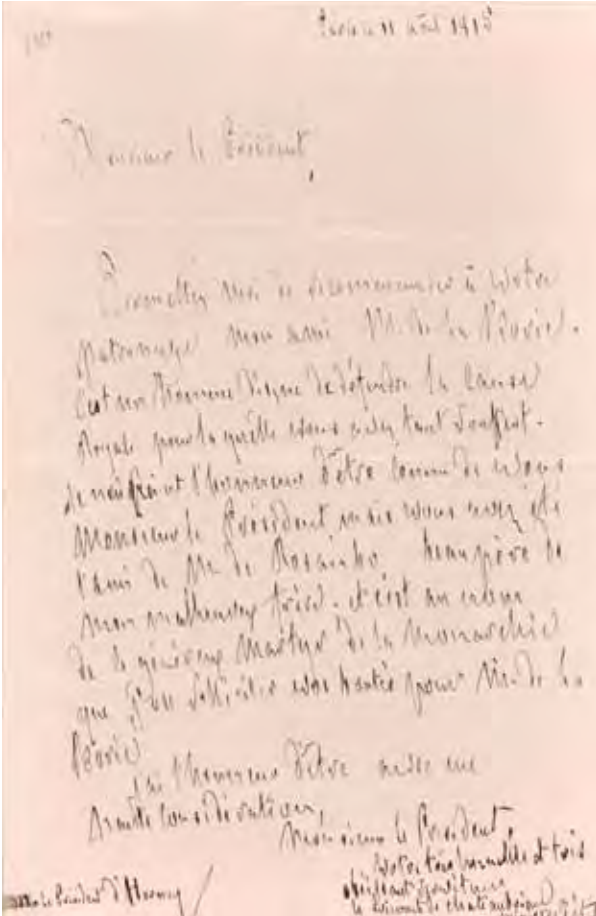 Paris le 11 août 1815
Monsieur le Président,
Permettez moi de recommander à votre
patronage mon ami M. de la
C'est un homme digne de défendre la cause
Royale pour laquelle vous avez tant souffert.
Je n'ai point l'honneur d'être connu de vous
Monsieur le Président mais vous avez été
l'ami de M. de Rosanbo beau père de
mon malheureux frère. et c'est au nom
de ce généreux Martyr de la Monarchie
que j'ose solliciter vos bontés pour M. de la
J'ai l'honneur d'être avec une
haute considération,
Monsieur le Président,
Votre très humble et très
obéissant serviteur
le Vicomte de Chateaubriand
le Président d'